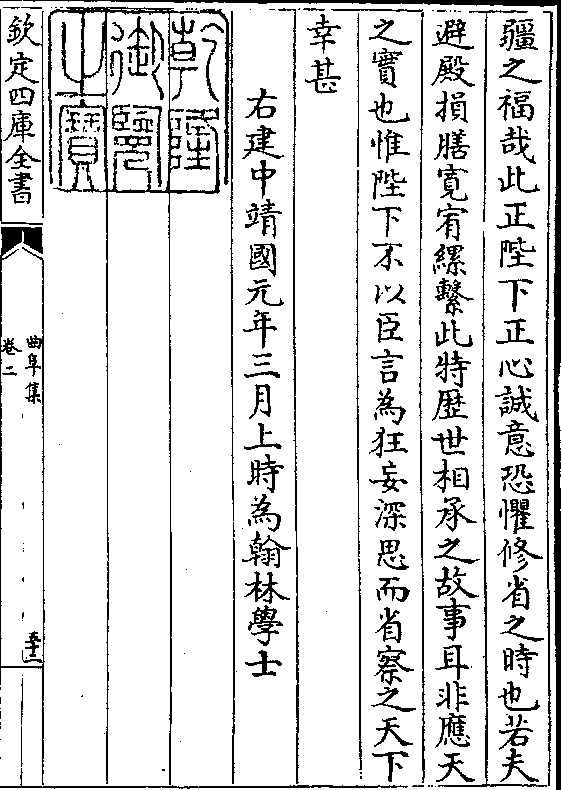 疆之福哉此正陛下正心誠意恐懼修省之時也若夫
避殿損膳寛宥縲繫此特歴世相承之故事耳非應天
之實也惟陛下不以臣言為狂妄深思而省察之天下
幸甚
右建中靖國元年三月上時為翰林學士
乾隆
御覽
之寶
欽定四庫全書
曲阜集
卷二